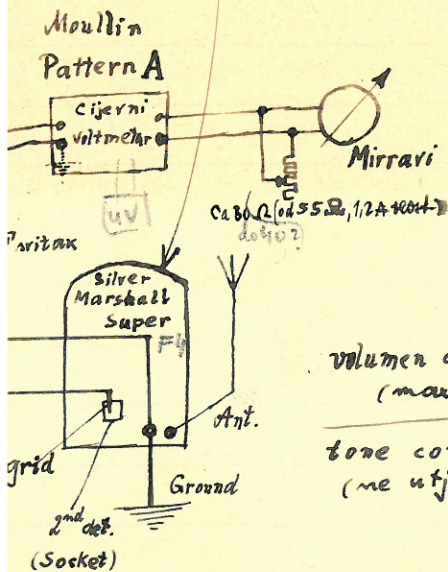 Moullin
Pattern A
Cijevni
Voltmetar
Mirravi
uV
ca 80 Ω (od 55 Ω, 1,2 A
do 40?
Silver
Marshall
Super
F4
Ant.
grid
Ground
2nd det.
(Socket)
volumen
tone
(ne